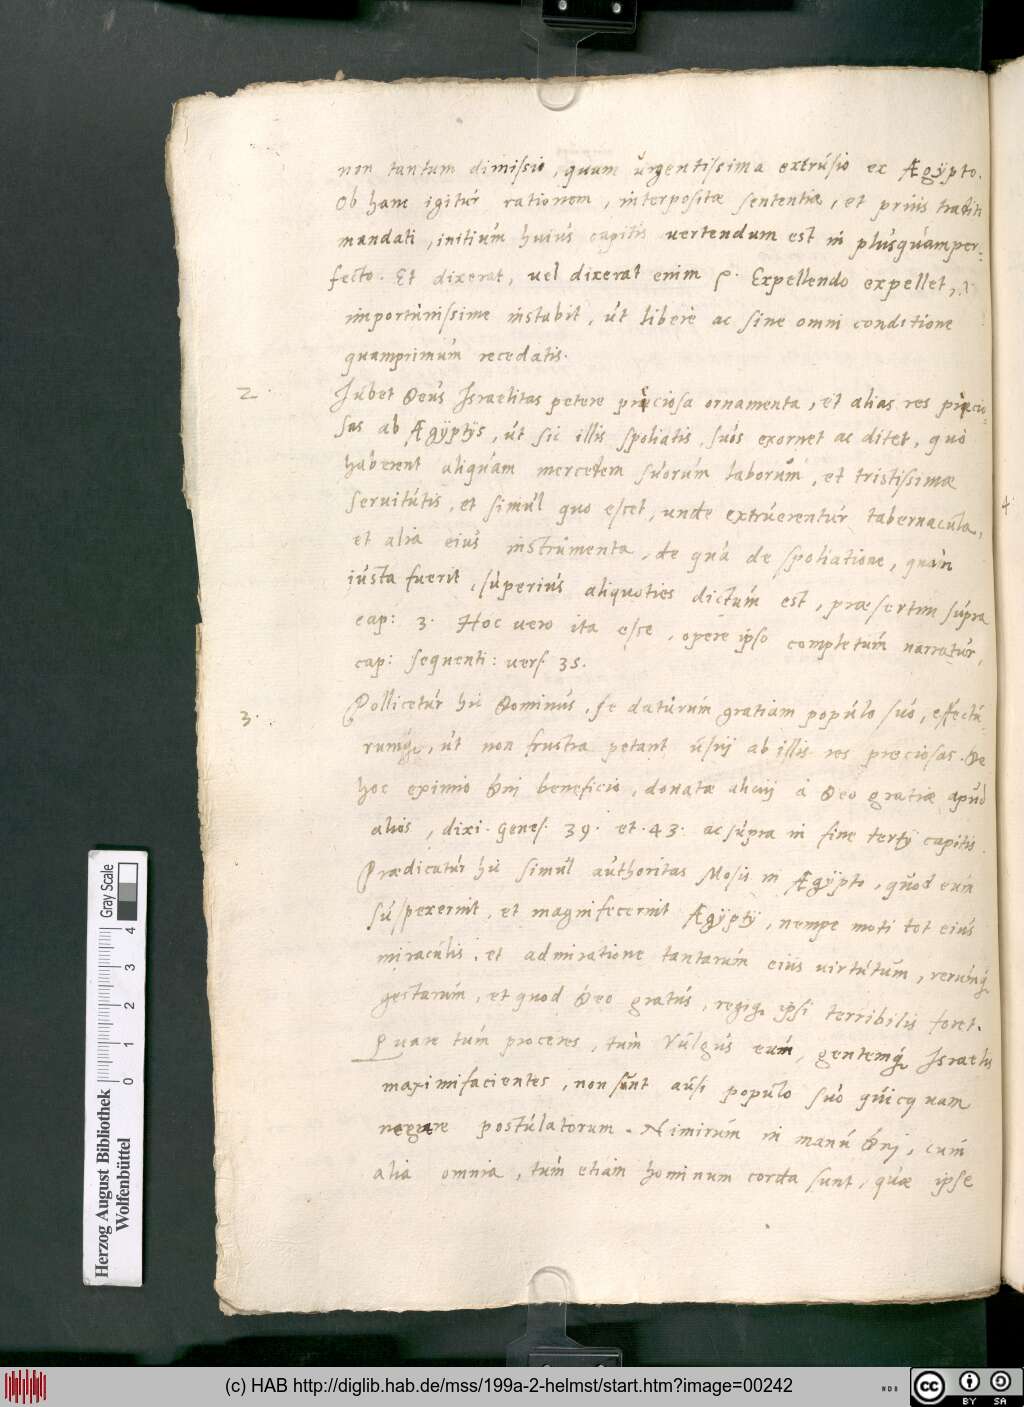 non tantum dimissio, quam urgentissima extrusio ex Ægypto.
Ob hanc igitur rationem, interpositæ sententiæ, et prius traditi
mandati, initium huius capitis vertendum est in plusquamper-
fecto. Et dixerat, vel dixerat enim Expellendo expellet,
importunissime instabit, ut libere ac sine omni conditione
quamprimum recedatis.
2. Jubet Deus Israelitas petere preciosa ornamenta, et alias res precio-
sas ab Ægyptijs, ut sic illis spoliatis, suos exornet ac ditet, quo
haberent aliquam mercedem suorum laborum, et tristissimæ
servitutis, et simul quo esset, unde extruerentur tabernacula,
et alia eius instrumenta, de qua de spoliatione, quam
iusta fuerit, superius aliquoties dictum est, præsertim supra
cap: 3. Hoc vero ita esse, opere ipso completum narratur,
cap: sequenti: vers. 35.
3. Pollicetur hic Dominus, se daturum gratiam populo suo, effectu-
rumq, ut non frustra petant usui ab illis res preciosas. De
hoc eximio Dni beneficio, donatæ alicui à Deo gratiæ apud
alios, dixi. Genes. 39. et. 43. ac supra in fine tertij capitis.
Prædicatur hic simul authoritas Mosis in Ægypto, quod eum
suspexerint, et magnifecerint Ægyptij, nempe moti tot eius
miraculis, et admiratione tantarum eius virtutum, rerumq
gestarum, et quod Deo gratus, regiq ipsi terribilis foret.
Quare tum proceres, tum vulgus eum, gentemq Israelis
maximifacientes, non sunt ausi populo suo quicquam
negare postulatorum. Nimirum in manu Dni, cum
alia omnia, tum etiam hominum corda sunt, quæ ipse
4
Gray Scale
0 1 2 3 4
Herzog August Bibliothek
Wolfenbüttel
(c) HAB http://diglib.hab.de/mss/199a-2-helmst/start.htm?image=00242
cc BY SA